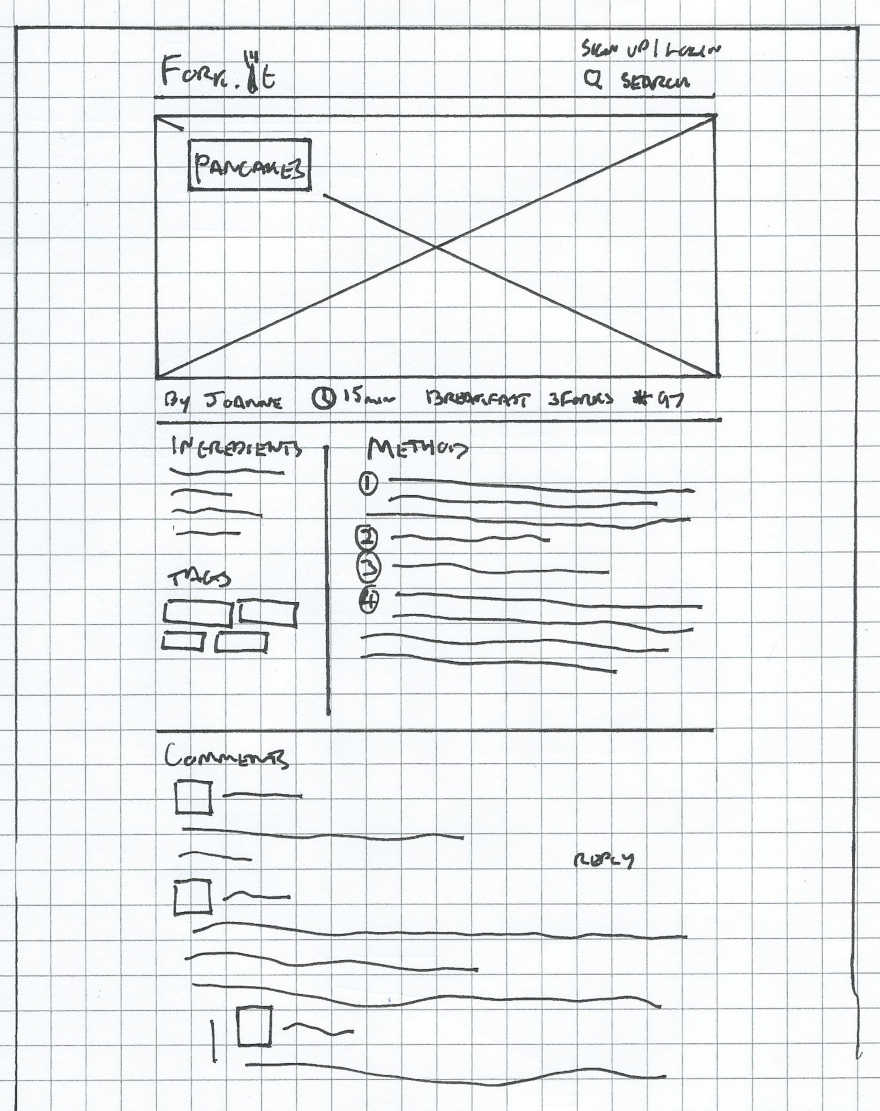 FORK.it
SIGN UP | LOGIN
SEARCH
PANCAKES
By JOANNE 15min BREAKFAST 3FORKS #97
INGREDIENTS
METHOD
1
2
3
4
TAGS
COMMENTS
REPLY